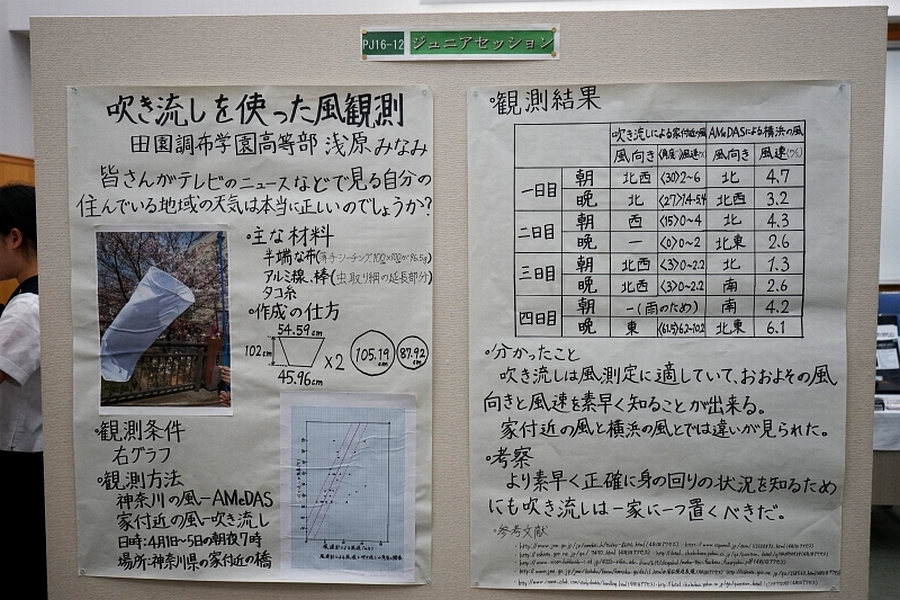 PJ16-12 ジュニアセッション
吹き流しを使った風観測
田園調布学園高等部 浅原みなみ
皆さんがテレビのニュースなどで見る自分の
住んでいる地域の天気は本当に正しいのでしょうか?
・主な材料
半端な布
アルミ線、棒(虫取り網の延長部分)
タコ糸
・作成の仕方
54.59cm
102cm ×2 105.19cm 87.92cm
45.96cm
・観測条件
右グラフ
・観測方法
神奈川の風ーAMeDAS
家付近の風ー吹き流し
日時:4月1日~5日朝夜7時
場所:神奈川県の家付近の橋
・観測結果
吹き流しによる家付近の風 AMeDASによる横浜の風
風向き 〈角度〉風速 風向き 風速
一日目 朝 北西 〈30〉2~6 北西 4.7
晩 北 〈27〉1.4-5.4 北西 3.2
二日目 朝 西 〈15〉0~4 北 4.3
晩 ー 〈0〉0~2 北東 2.6
三日目 朝 北西 〈3〉0~2.2 北 1.3
晩 北西 〈3〉0~2.2 南 2.6
四日目 朝 ー(雨のため) 南 4.2
晩 東 〈61.5〉6.2-10.2 北東 6.1
・分かったこと
吹き流しは風測定に適していて、おおよその風
向きと風速を素早く知ることが出来る。
家付近の風と横浜の風とでは違いが見られた。
・考察
より素早く正確に身の回りの状況を知るため
にも吹き流しは一家に一つ置くべきだ。
・参考文献